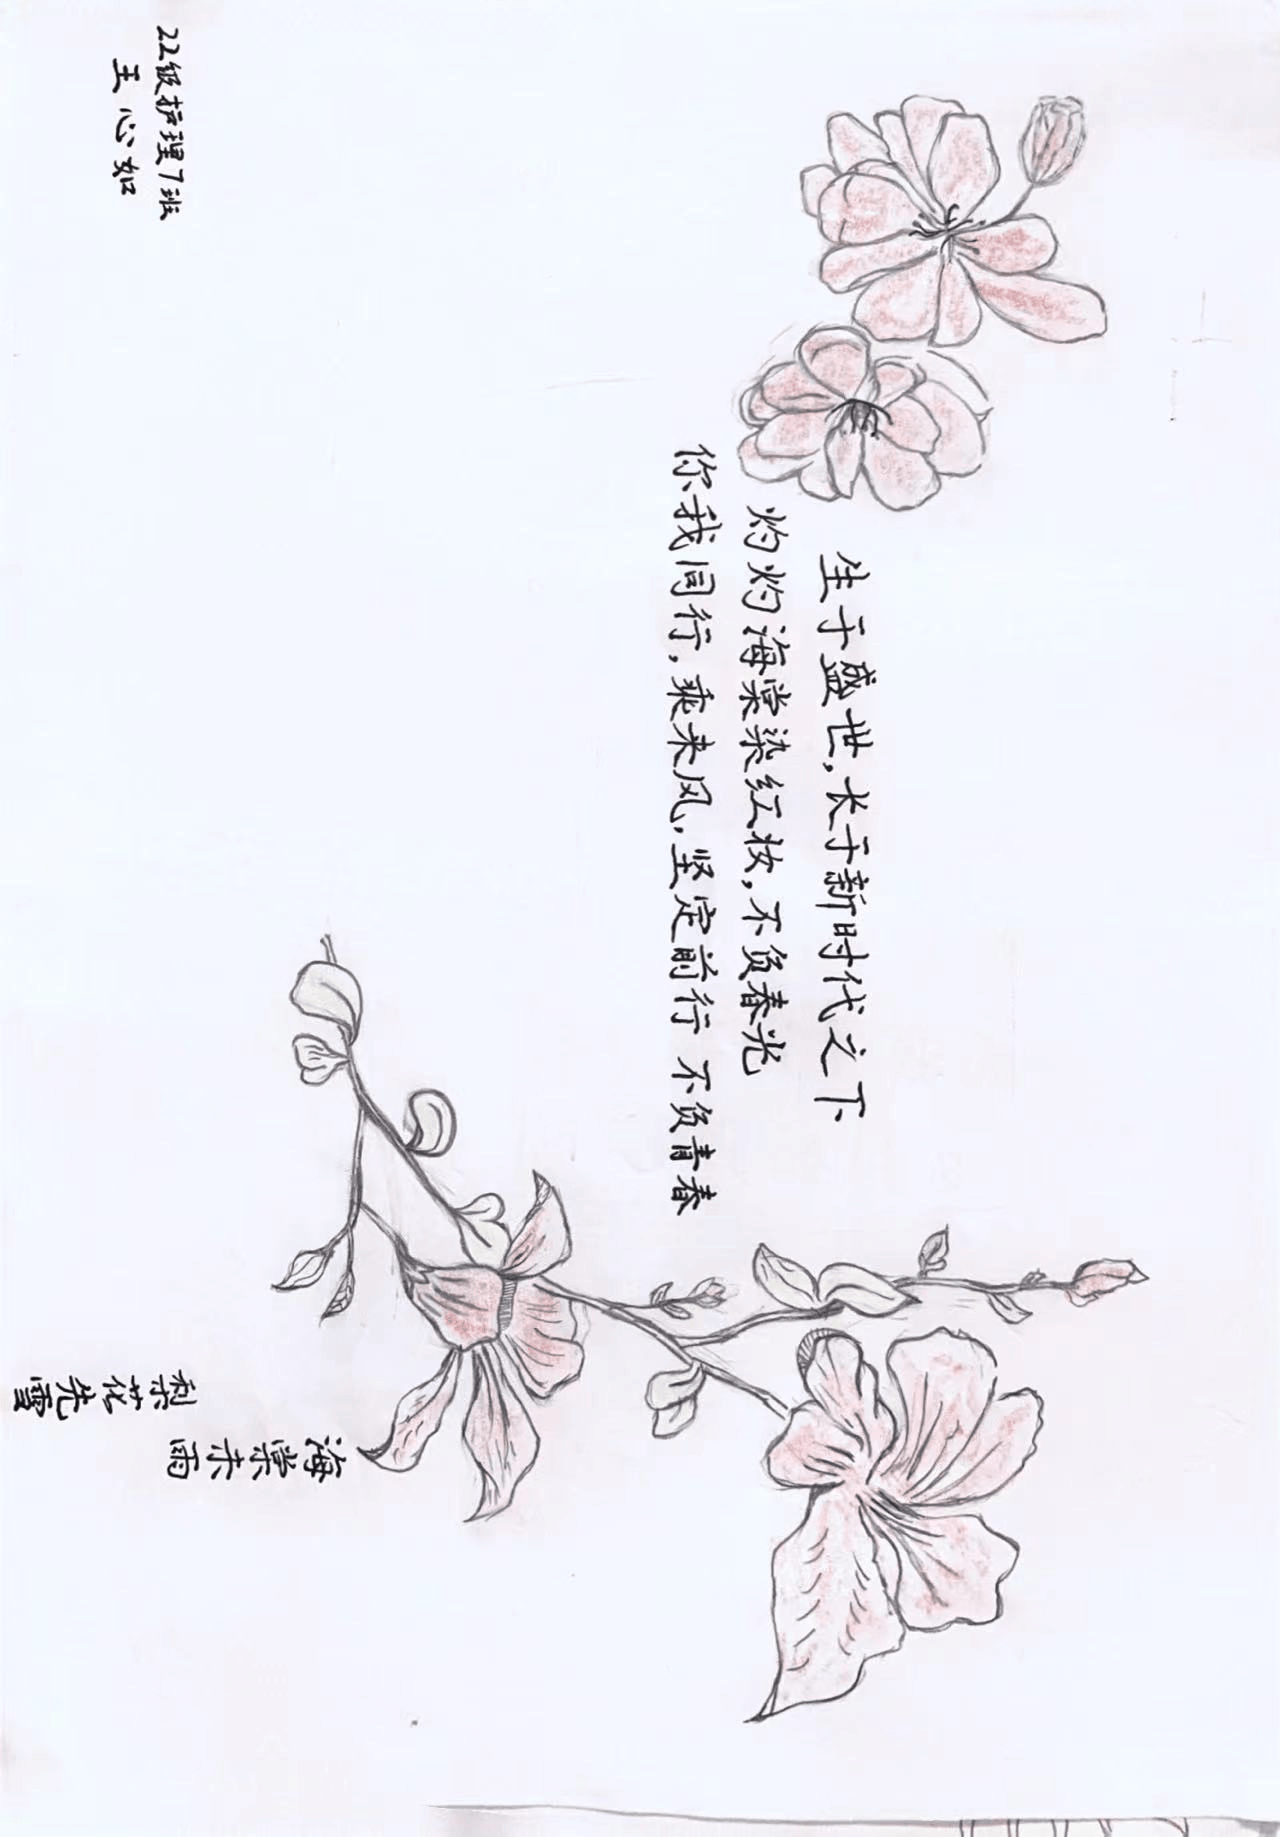 生于盛世，长于新时代之下
灼灼海棠染红妆，不负春光
你我同行，乘来风，坚定前行 不负青春
海棠未雨
梨花先雪
22级护理7班
王心如